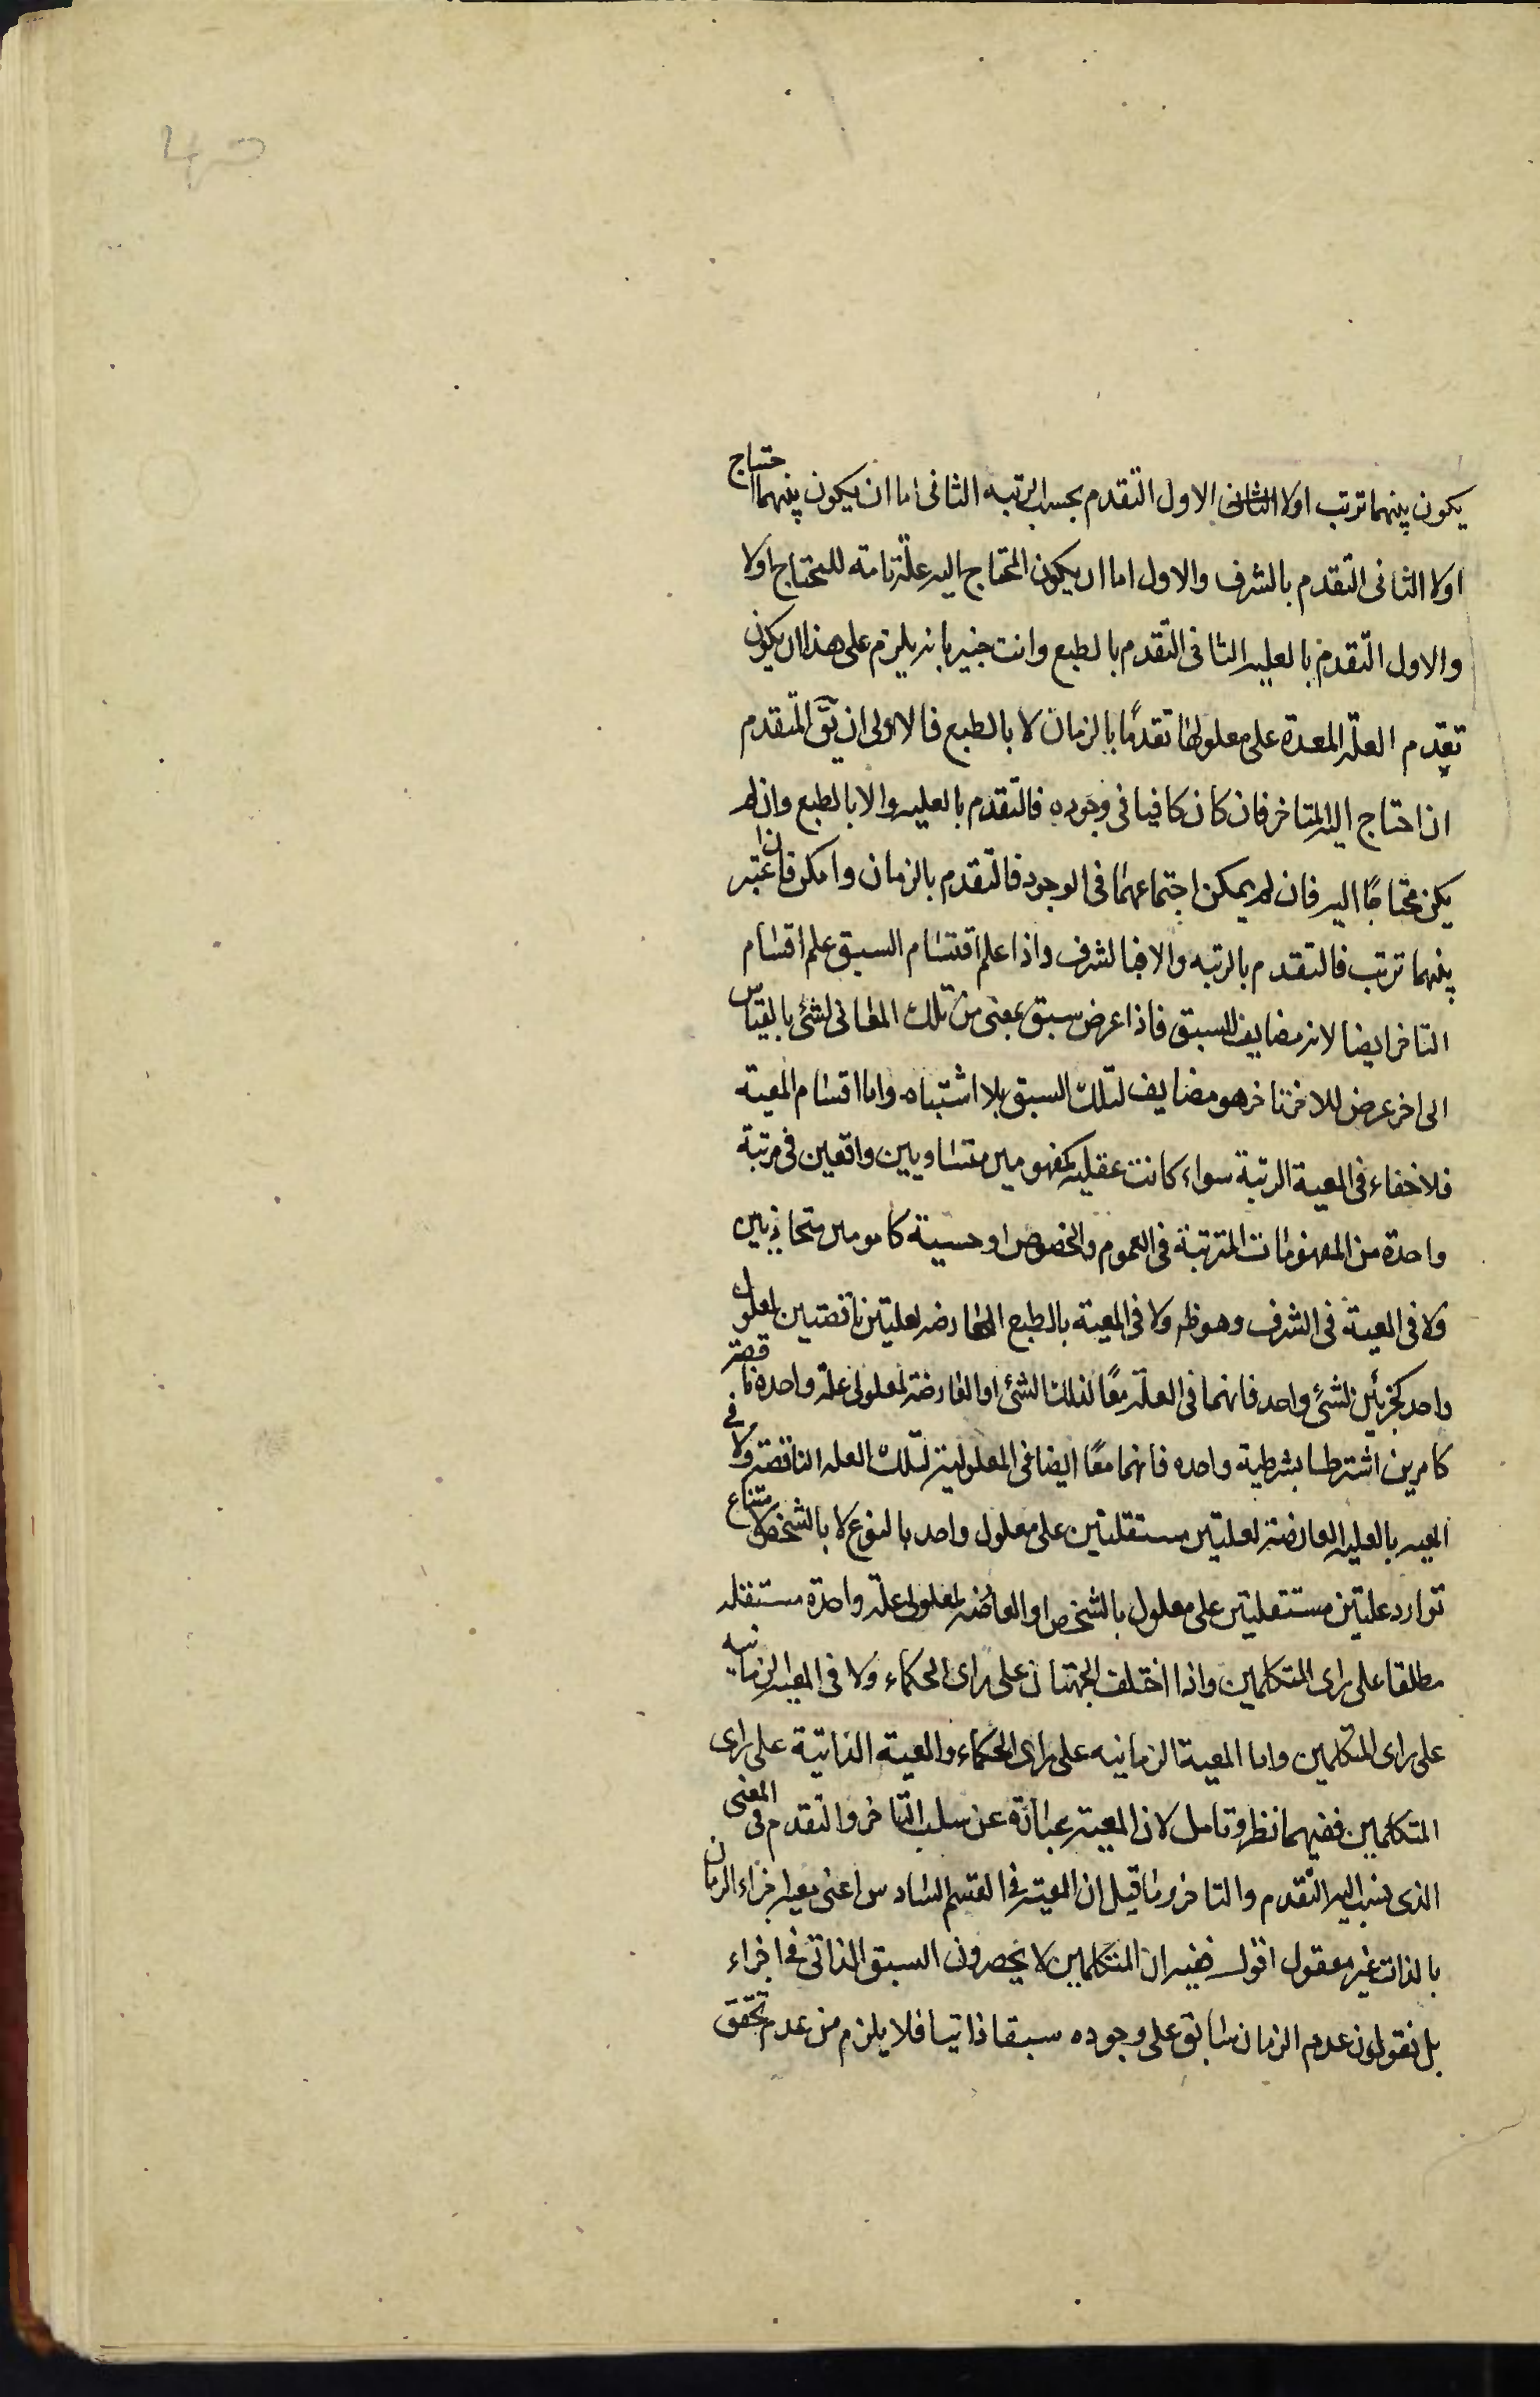 يكون بينهما ترتب اولا الثانى الاول التقدم بحسب الرتبه الثانى اما ان يكون بينهما احتياج
اولا الثانى التقدم بالشرف والاول اما ان يكون المحتاج اليه علة تامة للمحتاج اولا
والاول التقدم بالعليه الثانى التقدم بالطبع وانت خبير بانه يلزم على هذا ان يكون
تقدم العلة المعدة على معلولها تقدمًا بالزمان لا بالطبع فالاولى ان يق المتقدم
ان احتاج اليه المتاخر فان كان كافيا فى وجوده فالتقدم بالعليه والا بالطبع وان لم
يكن محتاجًا اليه فان لم يمكن اجتماعهما فى الوجود فالتقدم بالزمان وامكن فان اعتبر
بينهما ترتب فالتقدم بالرتبه والا فبالشرف واذا علم اقتسام السبق علم اقسام
التاخر ايضا لانه مضايف للسبق فاذا عرض سبق بمعنى من تلك المعانى لشئ بالقياس
الى اخر عرض للاخر تاخر هو مضايف لتلك السبق بلا اشتباه واما اقسام المعية
فلا خفاء فى المعية الرتبة سواء كانت عقليه كمفهومين متساويين واقعين فى مرتبة
واحدة من المفهومات المترتبة فى العموم والخصوص او حسية كامومين متحاذيين
ولا فى المعية فى الشرف وهو ظ ولا فى المعية بالطبع العارضه لعلتين ناقصتين لمعلول
واحد كجزئين لشئ واحد فانهما فى العلة معًا لذلك الشئ او العارضة لمعلولى علة واحده ناقصة
كامرين اشترطا بشرطية واحده فانهما معًا ايضا فى المعلولية لتلك العله الناقصة ولا فى
المعيه بالعليه العارضة لعلتين مستقلتين على معلول واحد بالنوع لا بالشخص لامتناع
توارد علتين مستقلتين على معلول بالشخص او العارضه لمعلولى علة واحدة مستقله
مطلقا على راى المتكلمين واذا اختلف الجهتان على راى الحكماء ولا فى المعيه الزمانيه
على راى المتكلمين واما المعية الزمانيه على راى الحكماء والمعية الذاتية على راى
المتكلمين ففيهما نظر وتامل لان المعية عبارة عن سلب التاخر والتقدم فى المعنى
الذى ينسب اليه التقدم والتاخر وما قيل ان المعية فى القسم السادس اعنى معية اجزاء الزمان
بالذات غير معقول اقول فيه ان المتكلمين لا يحصرون السبق الذاتى فى اجزاء
بل يقولون عدم الزمان سابق على وجوده سبقا ذاتيا فلا يلزم من عدم تحقق